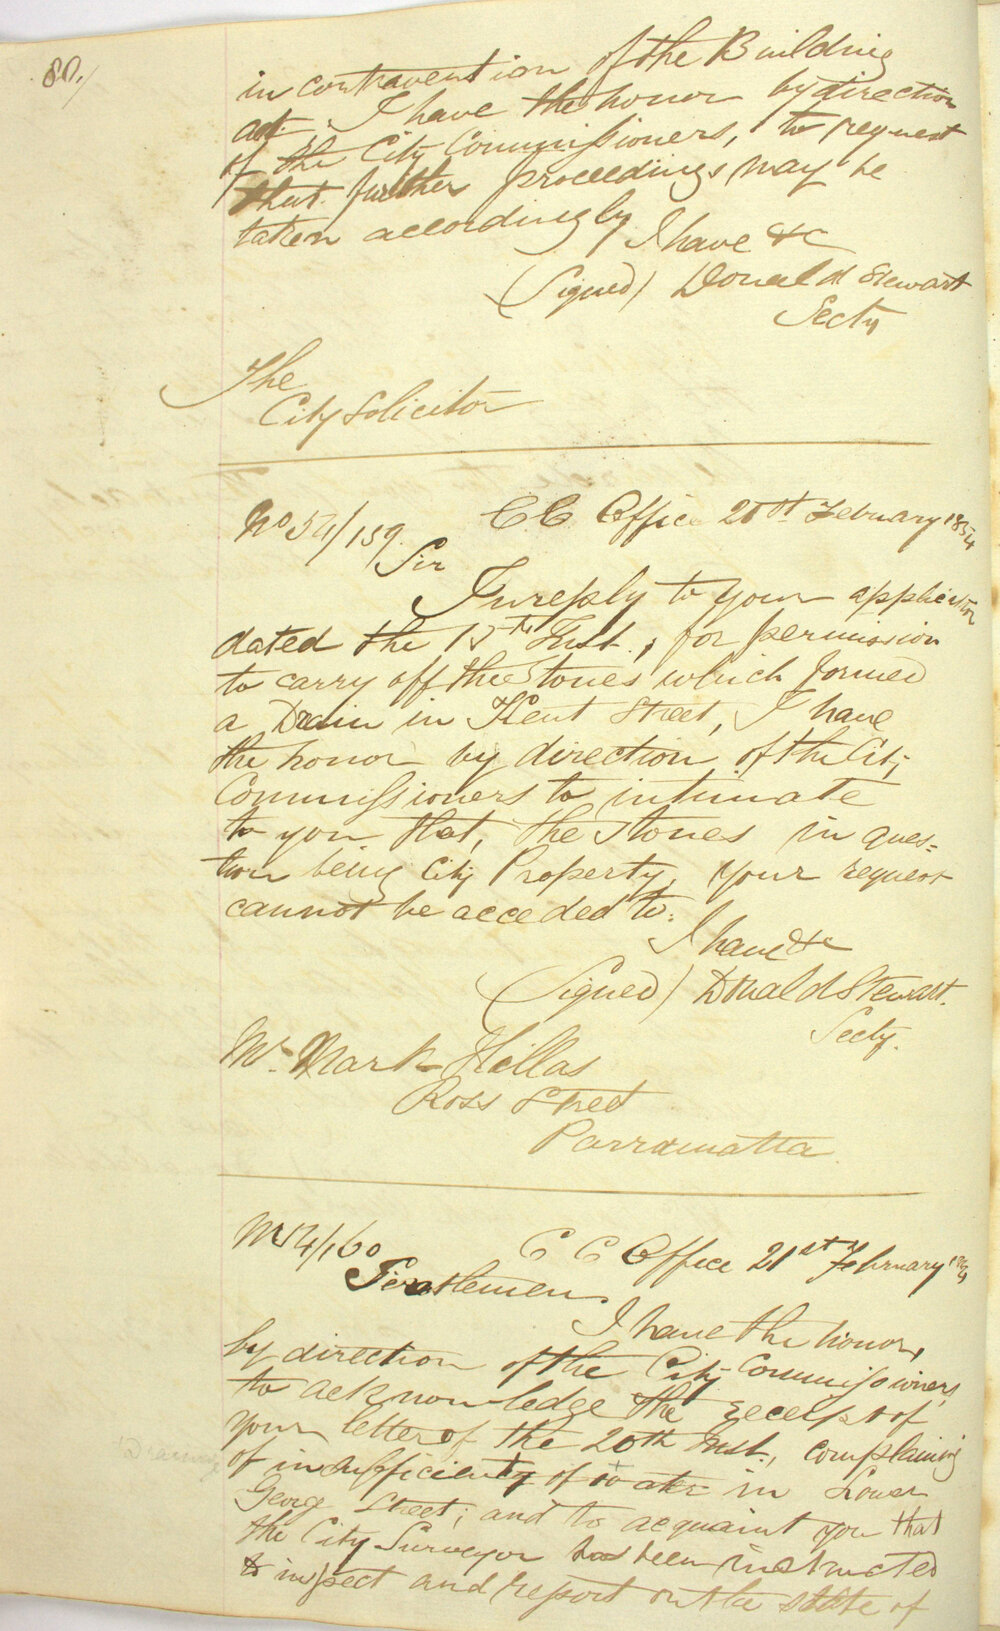 80./
in contravention of the Building
act. I have the honor by direction
of the City Commissioners, to request
that further proceedings may be
taken accordingly
I have &c
(Signed) Donald Stewart
Secty
The
City Solicitor
No 54/159. C C Office 20th February 1854
Sir
In reply to your application
dated the 15th Inst., for permission
to carry off the Stones which formed
a Drain in Kent Street, I have
the honor by direction of the City
Commissioners to intimate
to you that, the Stones in ques=
tion being City Property, your request
cannot be acceded to.
I have &c
(Signed) Donald Stewart.
Secty.
Mr. Mark Hillas
Ross Street
Parramatta
No 54/160 C C Office 21st February 1854
Gentlemen
I have the honor,
by direction of the City Commissioners,
to acknowledge the receipt of
your letter of the 20th Inst., complaining
of insufficienty of water in Lower
Georg Street; and to acquaint you that
the City Surveyor has been instructed
to inspect and report on the state of